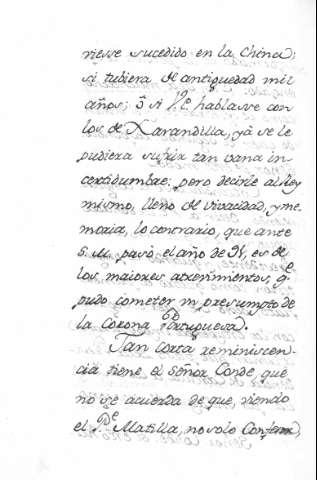 viesse sucedido en la China;
si tubiera de antiguedad mil
años; ô si S.e hablasse con
los de Xarandilla, yà se le
pudiera sufrir tan vana in-
certidumbre: pero decirle al Rey
mismo, lleno de vivacidad, y me-
moria, lo contrario, que ante
S. M. pasò, el año de 94, es de
los maiores atrevimentos, q.e
pudo cometer un presumpto de
la Corona Portuguesa.
Tan corta reminiscen-
cia tiene el señor Conde, que
no se acuerda de que, siendo
el P.e Matilla, no solo Confessor,